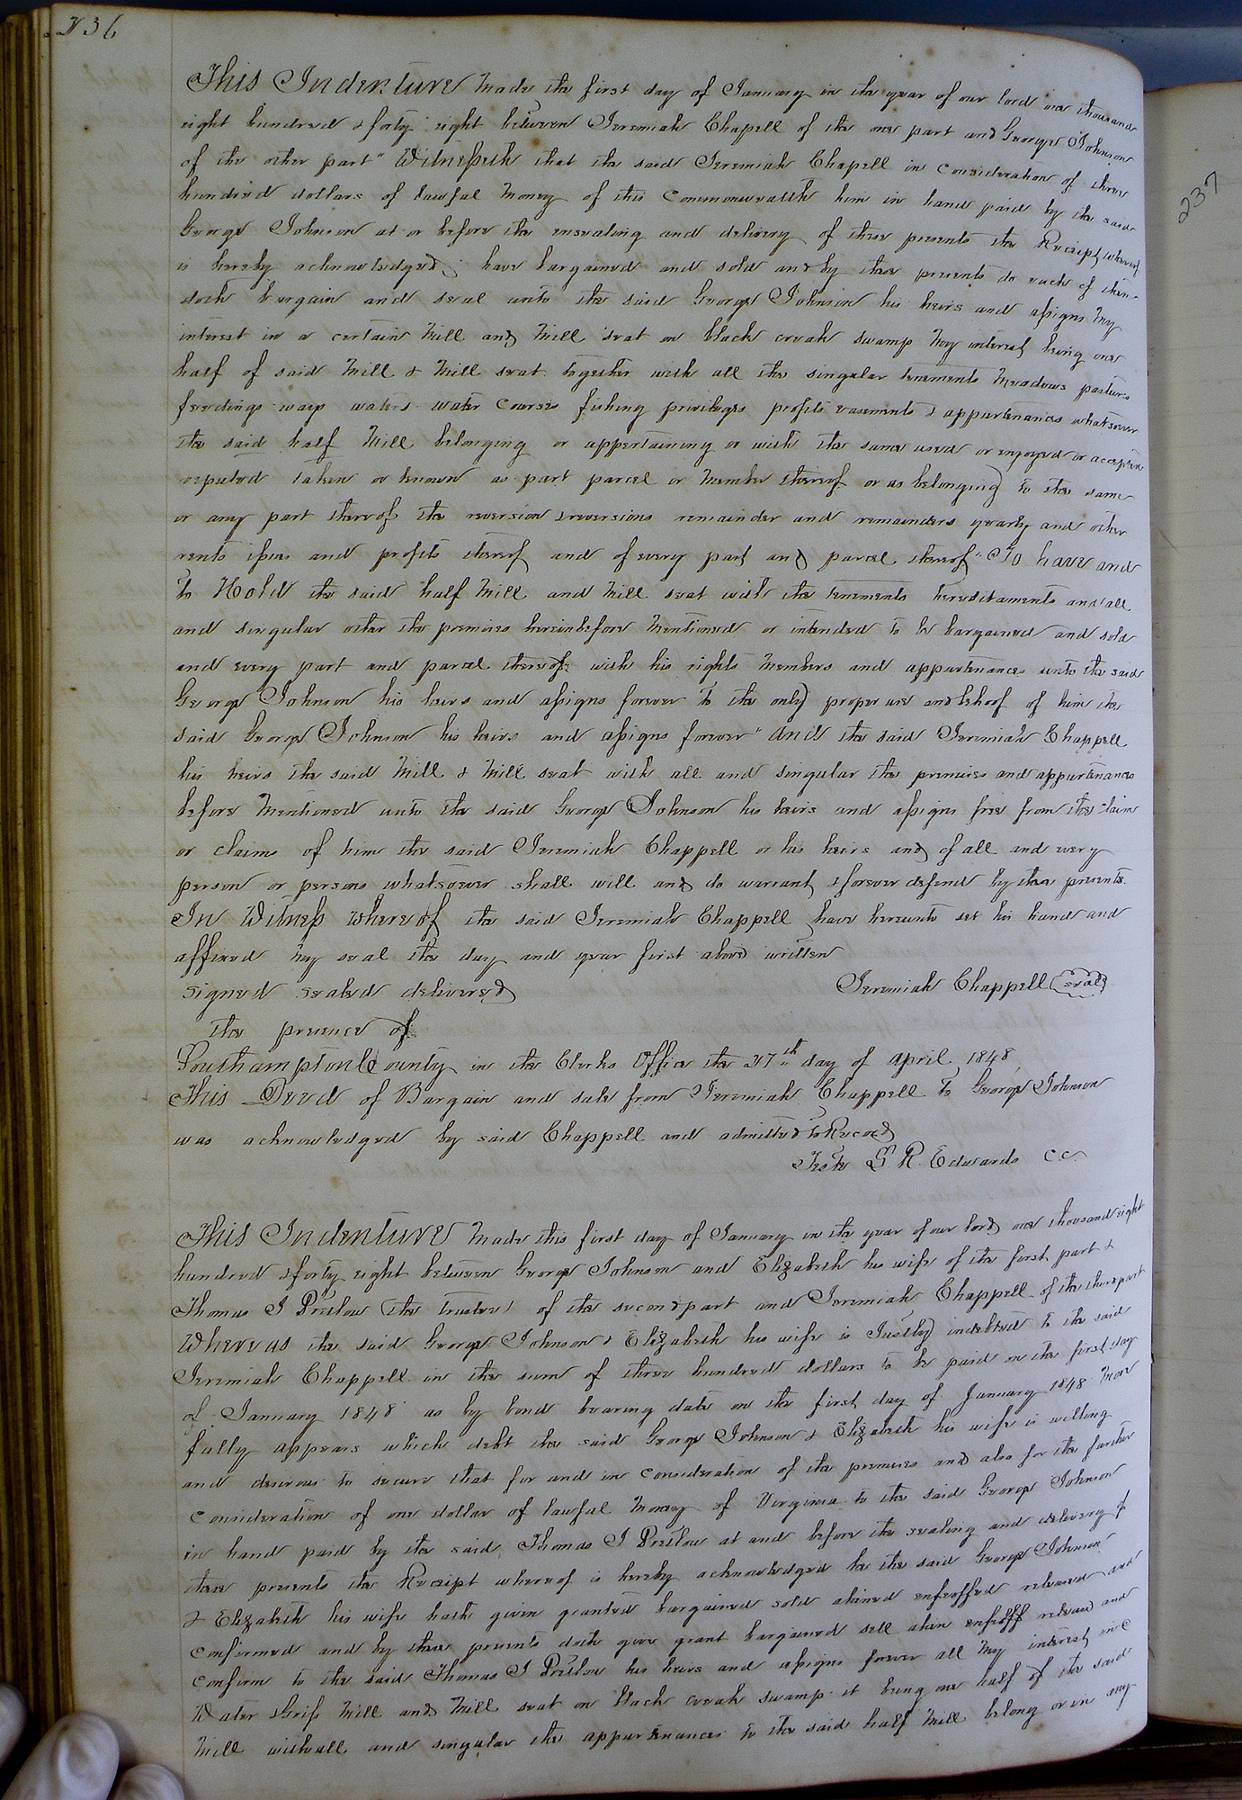 236
This Indenture Made the first day of January in the year of our lord one thousand
eight hundred & forty eight between Jeremiah Chapell of the one part and George Johnson
of the other part" Witnesseth that the said Jeremiah Chapell in consideration of three
hundred dollars of lawful Money of this Commonwealth him in hand paid by the said
George Johnson at or before the ensealing and delivery of these presents the Receipt whereof
is hereby acknowledged, have bargained and sold and by these presents do each of them
doth bargain and seal unto the said George Johnson his heirs and assigns My
interest in a certain Mill and Mill seat on black creak swamp My interest being one
half of said Mill & Mill seat together with all the singular tenements Meadows pastures
feedings ways waters water Courses fishing privileges profits easements & appurtenances whatsoever
the said half Mill belonging or appertaining or with the same used or enjoyed or accepted
reputed taken or known as part parcel or Member thereof or as belonging to the same
or any part thereof the reversion & reversions remainder and remainders yearly and other
rents issues and profits thereof and of every part and parcel thereof" To have and
to Hold the said half Mill and Mill seat with the tenements hereditaments and all
and singular other the premises hereinbefore Mentioned or intended to be bargained and sold
and every part and parcel thereof with his rights Members and appurtenances unto the said
George Johnson his heirs and assigns forever to the only proper use and behoof of him the
said George Johnson his heirs and assigns forever" And the said Jeremiah Chappell
his heirs the said Mill & Mill seat with all and singular the premises and appurtenances
before Mentioned unto the said George Johnson his heirs and assigns free from the claim
or claims of him the said Jeremiah Chappell or his heirs and of all and every
person or persons whatsoever shall will and do warrant & forever defend by these presents
In Witness whereof the said Jeremiah Chappell have hereunto set his hand and
affixed My seal the day and year first above written
signed sealed delivered Jeremiah Chappell seal
the presence of
Southampton County in the Clerks Office the 27th day of April 1848
This Deed of Bargain and sale from Jeremiah Chappell to George Johnson
was acknowledged by said Chappell and admitted to Record
Teste L R Edwards CC
This Indenture Made this first day of January in the year of our lord one thousand eight
hundred & forty eight between George Johnson and Elizabeth his wife of the first part &
Thomas J Pretlow (the trustee) of the second part and Jeremiah Chappell of the third part
Whereas the said George Johnson & Elizabeth his wife is Justly indebted to the said
Jeremiah Chappell in the sum of three hundred dollars to be paid on the first day
of January 1848 as by bond bearing date on the first day of January 1848 More
fully appears which debt the said George Johnson & Elizabeth his wife is willing
and desirous to secure that for and in consideration of the premises and also for the further
consideration of one dollar of lawful Money of Virginia to the said George Johnson
in hand paid by the said Thomas J Pretlow at and before the sealing and delivery of
these presents the Receipt whereof is hereby acknowledged he the said George Johnson
& Elizabeth his wife hath given granted bargained sold aliened enfeoffed released and
confirmed and by these presents doth give grant bargained sell alien enfeoff release and
confirm to the said Thomas J Pretlow his heirs and assigns forever all My interest in
Water Grist Mill and Mill seat on black creak swamp it being one half of the said
Mill with all and singular the appurtenances to the said half Mill belong or in any
237